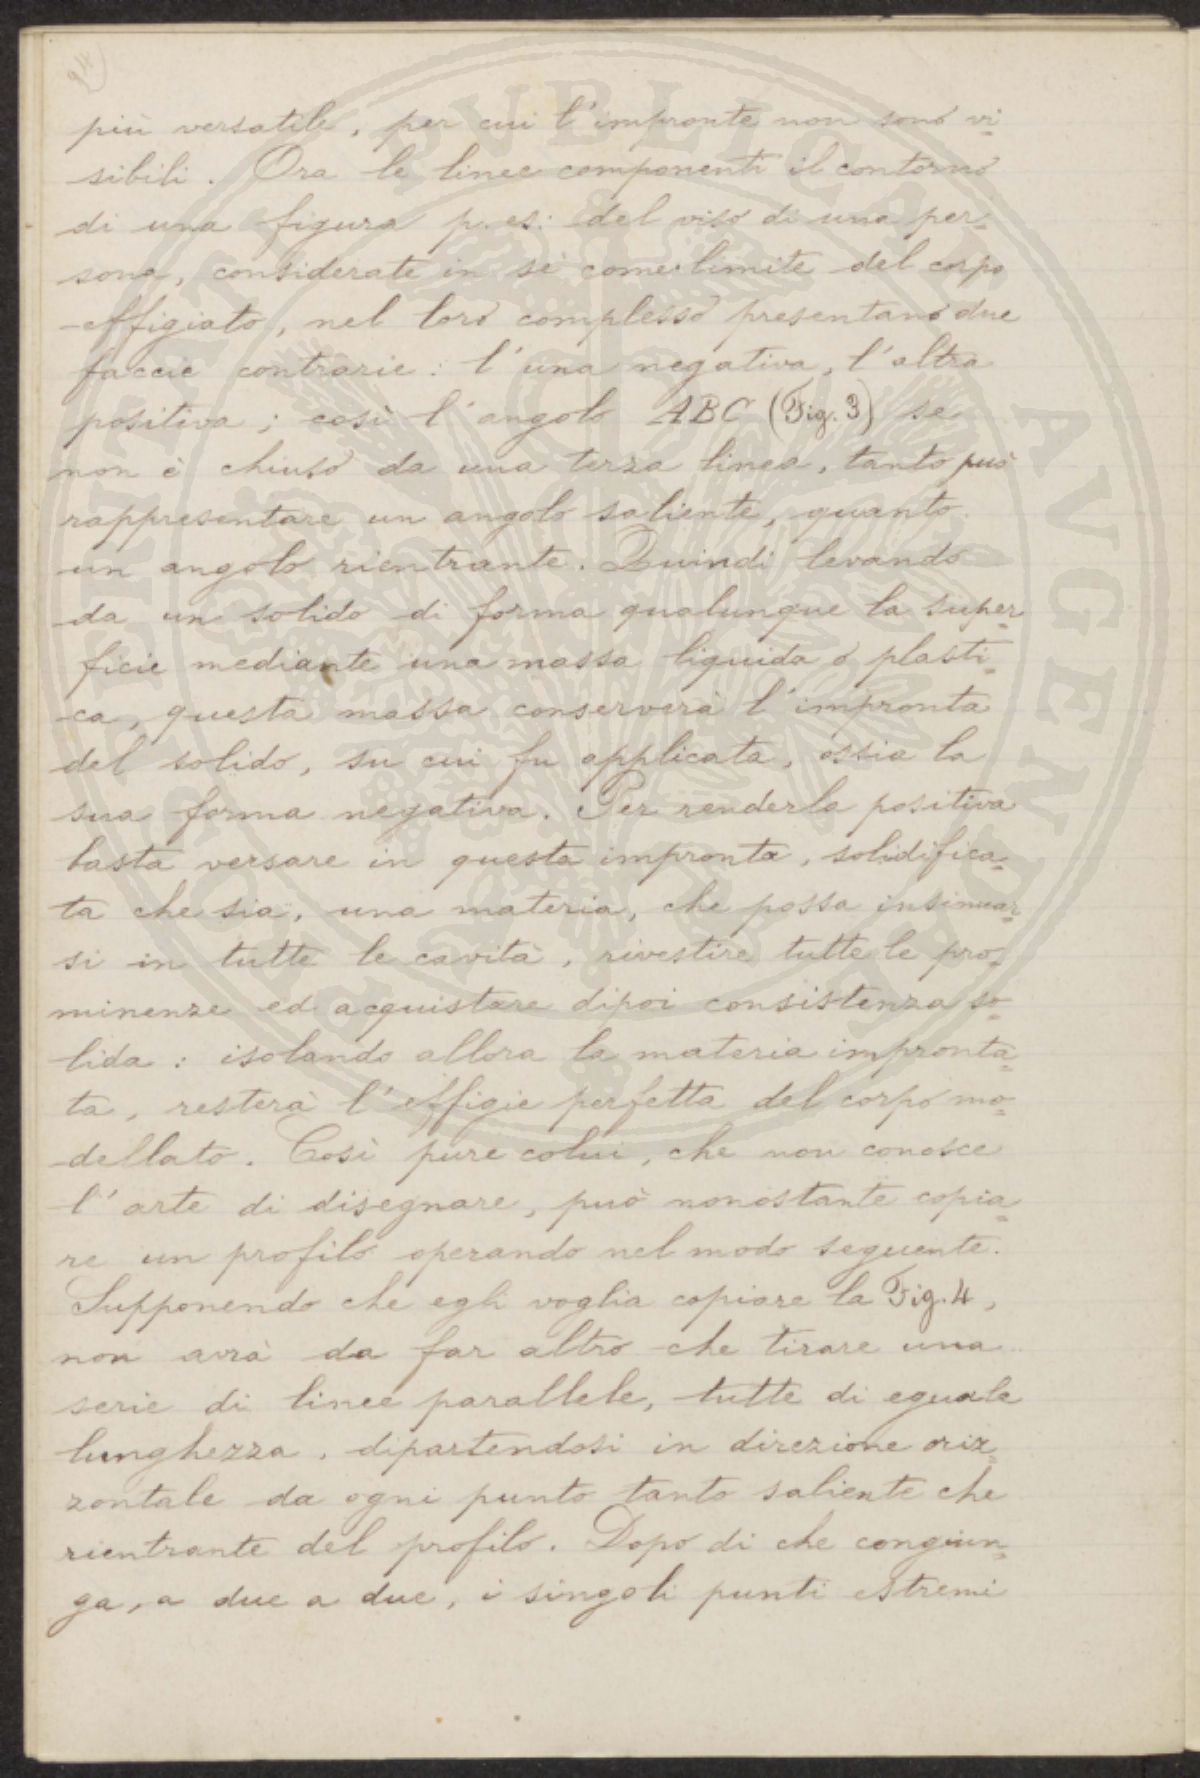 più versatile, per cui l'impronte non sono vi=
sibili. Ora le linee componenti il contorno
di una figura p. es: del viso di una per=
sona, considerate in sè come limite del corpo
effigiato, nel loro complesso presentano due
faccie contrarie: l'una negativa, l'altra
positiva; così l'angolo ABC (Fig. 3) se
non è chiuso da una terza linea, tanto può
rappresentare un angolo saliente, quanto
un angolo rientrante. Quindi levando
da un solido di forma qualunque la super=
ficie mediante una massa liquida o plasti=
ca, questa massa conserverà l'impronta
del solido, su cui fu applicata, ossia la
sua forma negativa. Per renderla positiva
basta versare in questa impronta, solidifica=
ta che sia, una materia, che possa insinuar=
si in tutte le cavità, rivestire tutte le pro=
minenze ed acquistare dipoi consistenza so=
lida: isolando allora la materia impronta=
ta, resterà l'effigie perfetta del corpo mo=
dellato. Così pure colui, che non conosce
l'arte di disegnare, può nonostante copia=
re un profilo operando nel modo seguente.
Supponendo che egli voglia copiare la Fig. 4,
non avrà da far altro che tirare una
serie di linee parallele, tutte di eguale
lunghezza, dipartendosi in direzione oriz=
zontale da ogni punto tanto saliente che
rientrante del profilo. Dopo di che congiun=
ga, a due a due, i singoli punti estremi